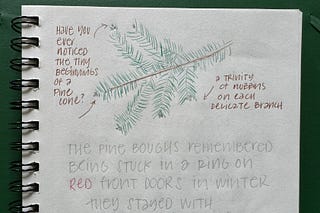 Have you
ever
noticed
the tiny
beginnings
of a
pine
cone?
a trinity
of nubbins
on each
delicate branch
The pine boughs remembered
being stuck in a ring on
RED front doors in winter
they stayed with